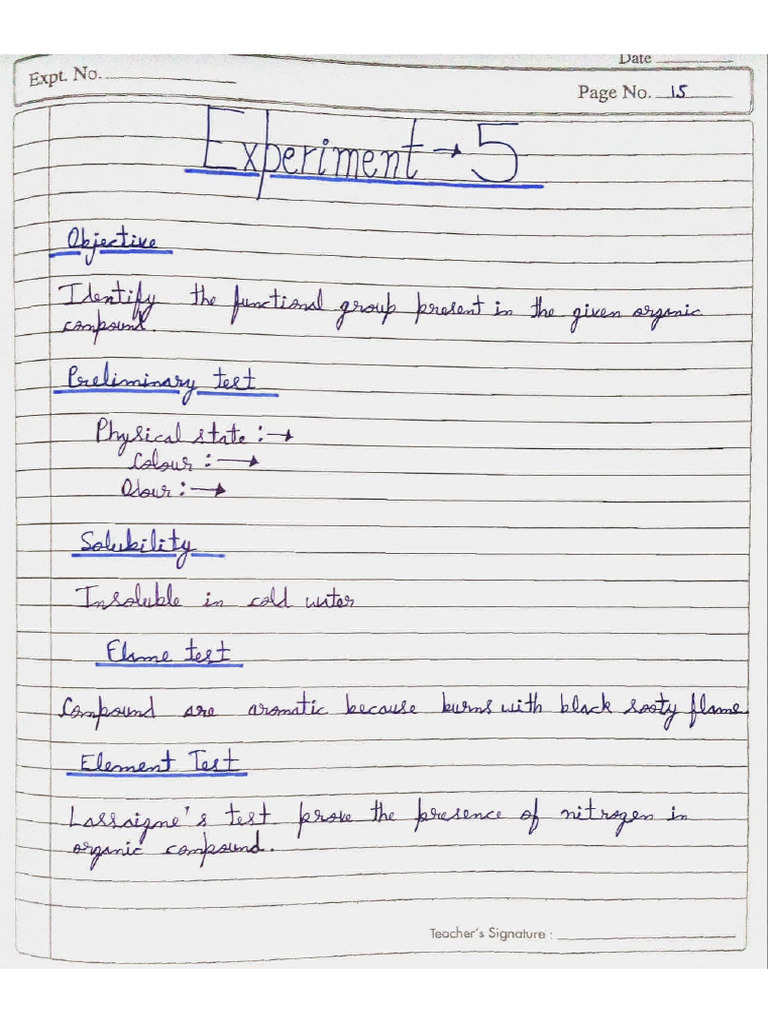 Date
Expt. No.
Page No. 15
Experiment → 5
Objective
Identify the functional group present in the given organic
compound.
Preliminary test
Physical state :→
Colour :→
Odour :→
Solubility
Insoluble in cold water
Flame test
Compound are aromatic because burns with black sooty flame.
Element Test
Lassaigne's test prove the presence of nitrogen in
organic compound.
Teacher's Signature :